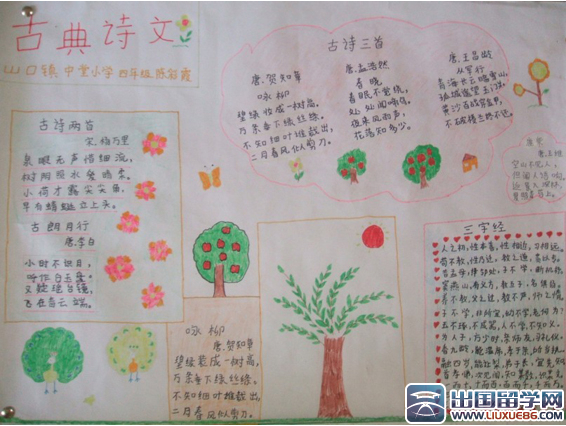 古典诗文
山口镇中堂小学 四年级 陈彩霞
古诗两首
宋.杨万里
泉眼无声惜细流,
树阴照水爱晴柔。
小荷才露尖尖角,
早有蜻蜓立上头。
古朗月行
唐.李白
小时不识月,
呼作白玉盘。
又疑瑶台镜,
飞在青云端。
古诗三首
唐.贺知章
咏柳
碧绿妆成一树高,
万条垂下绿丝绦。
不知细叶谁裁出,
二月春风似剪刀。
唐.孟浩然
春晓
春眠不觉晓,
处处闻啼鸟。
夜来风雨声,
花落知多少。
唐.王昌龄
从军行
青海长云暗雪山,
孤城遥望玉门关。
黄沙百战穿金甲,
不破楼兰终不还。
空山不见人,
但闻人语响。
返景入深林,
复照青苔上。
咏柳
唐.贺知章
碧绿妆成一树高,
万条垂下绿丝绦。
不知细叶谁裁出,
二月春风似剪刀。
三字经
人之初,性本善,性相近,习相远。
苟不教,性乃迁,教之道,贵以专。
昔孟母,择邻处,子不学,断机杼。
窦燕山,有义方,教五子,名俱扬。
养不教,父之过,教不严,师之惰。
子不学,非所宜,幼不学,老何为?
玉不琢,不成器,人不学,不知义。
为人子,方少时,亲师友,习礼仪。
香九龄,能温席,孝于亲,所当执。
融四岁,能让梨,弟于长,宜先知。
出国留学网
WWW.LIUXUE86.COM